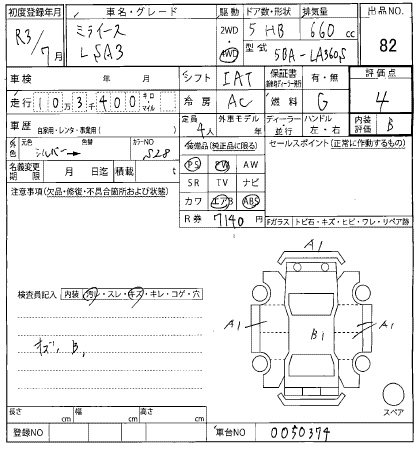 初度登録年月
R3/7月
車名・グレード
ミライース
L,SA3
駆動
2WD
4WD
ドア数・形状
5HB
排気量
660cc
型式
5BA-LA360S
出品NO.
82
車検 年 月
シフト IAT
保証書 有・無
評価点
4
走行 10万3千400 キロ・マイル
冷房 AC
燃料 G
車歴 自家用・レンタ・事業用( )
定員 4人
外車モデル 年
ディーラー・並行
ハンドル 左・右
内装評価 B
外色 元色 シルバー 色替 カラーNO S28
装備品(純正品に限る)
セールスポイント(正常に作動するもの)
名義変更期限 月 日迄
積載 t
PS PW AW
SR TV ナビ
カワ エアB ABS
R券 7140円
注意事項(欠品・修復・不具合箇所および状態)
Fガラス トビ石・キズ・ヒビ・ワレ・リペア跡
A1
検査員記入 内装 汚レ・スレ・キズ・キレ・コゲ・穴
A1
B1
A1
キズ, B,
A1
スペア
長さ cm 幅 cm 高さ cm
登録NO
車台NO 0050374